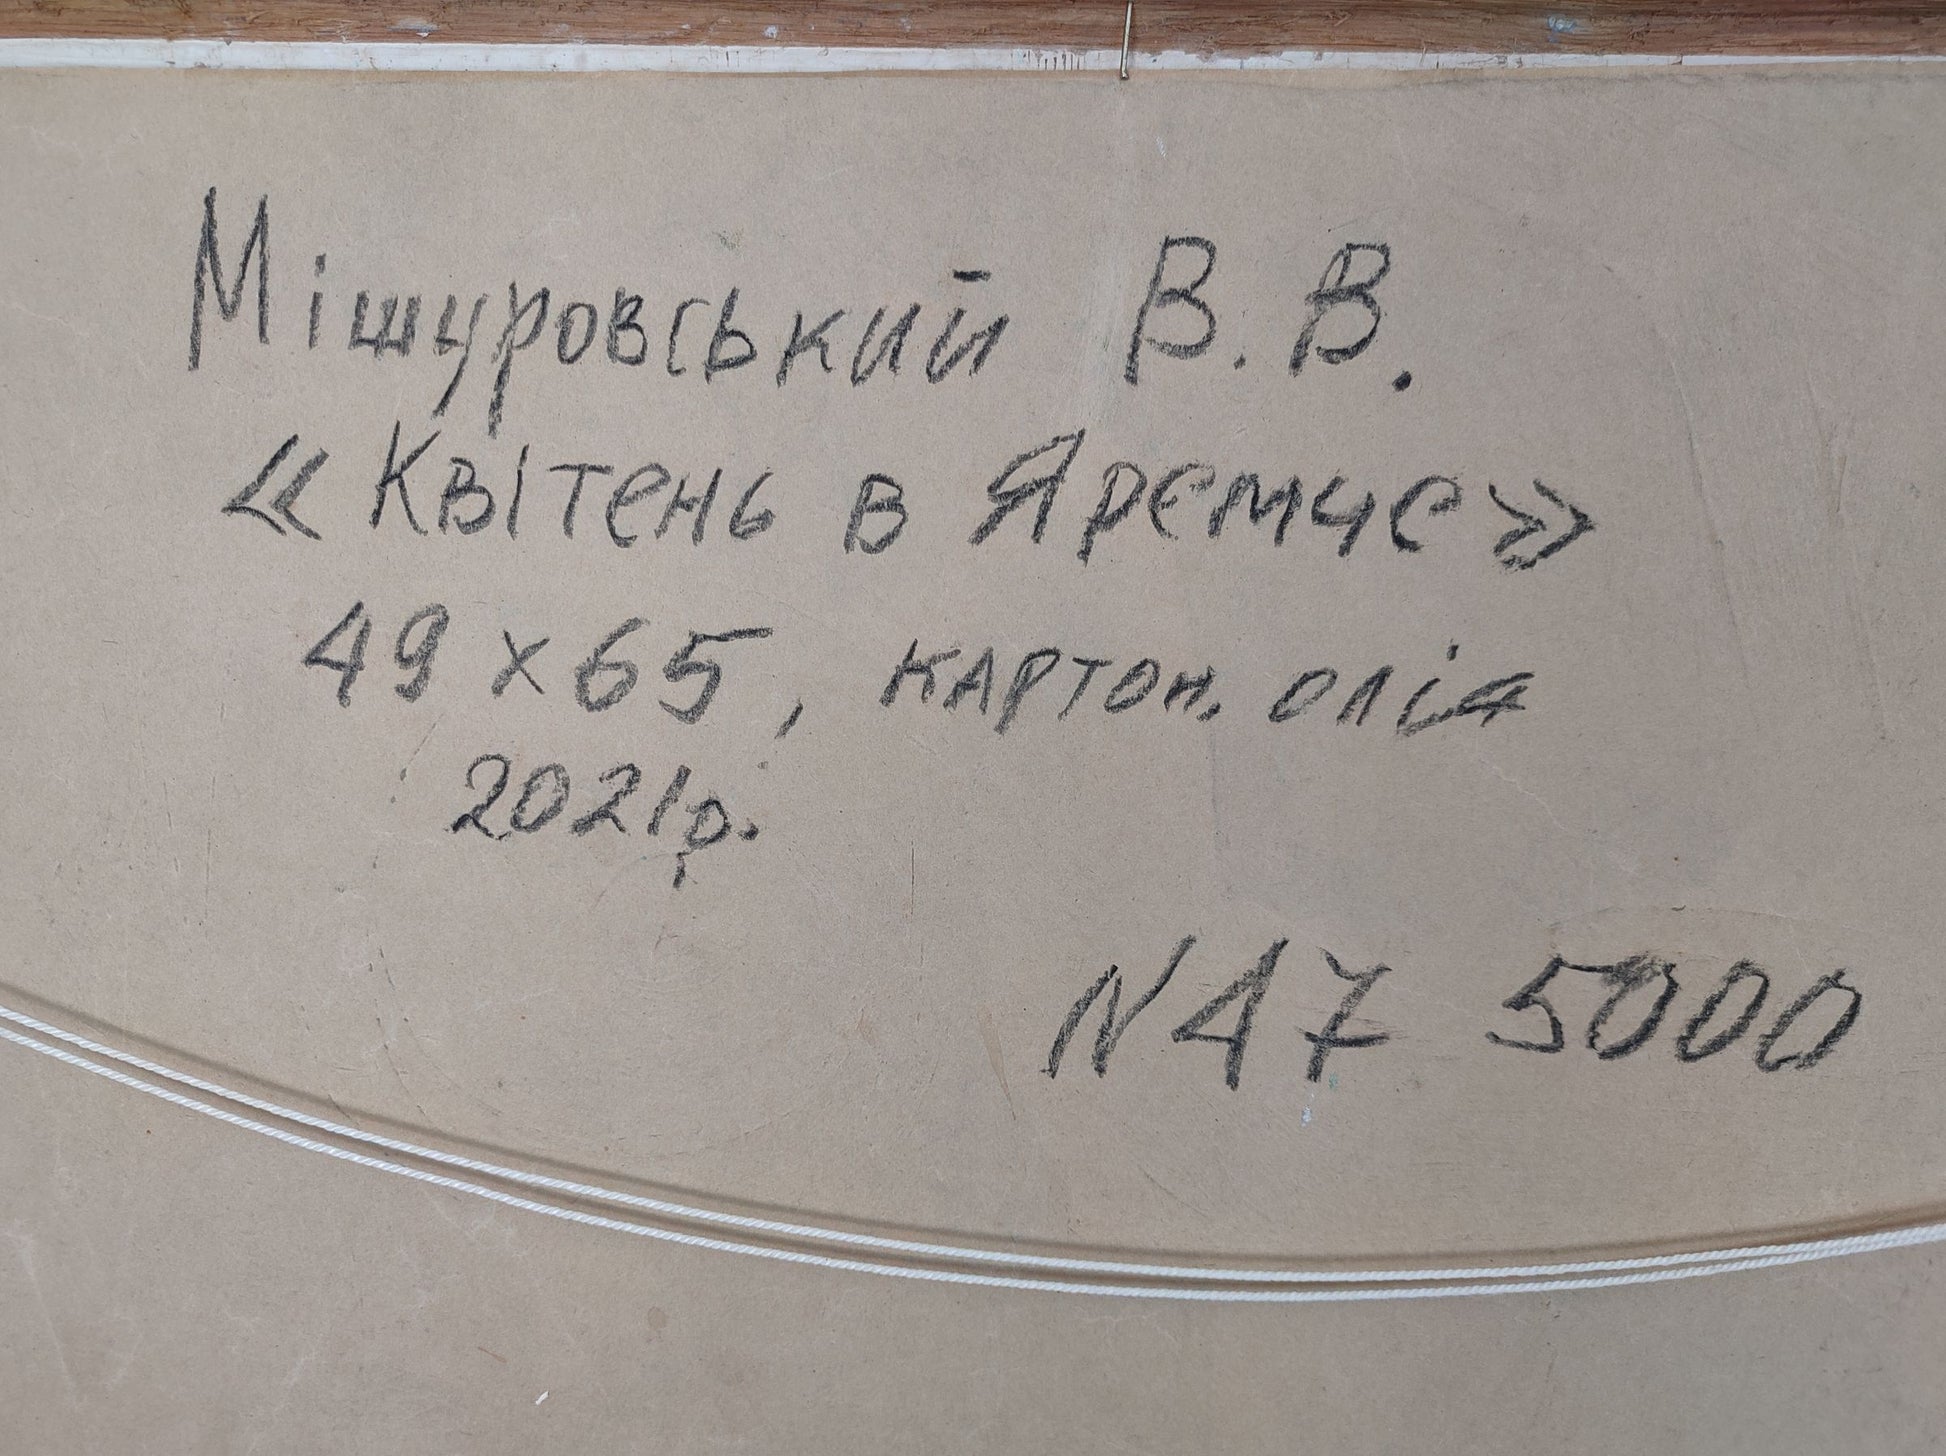 Мішуровський В.В.
«Квітень в Яремче»
49 x 65, картон. олія
2021р.
N47 5000